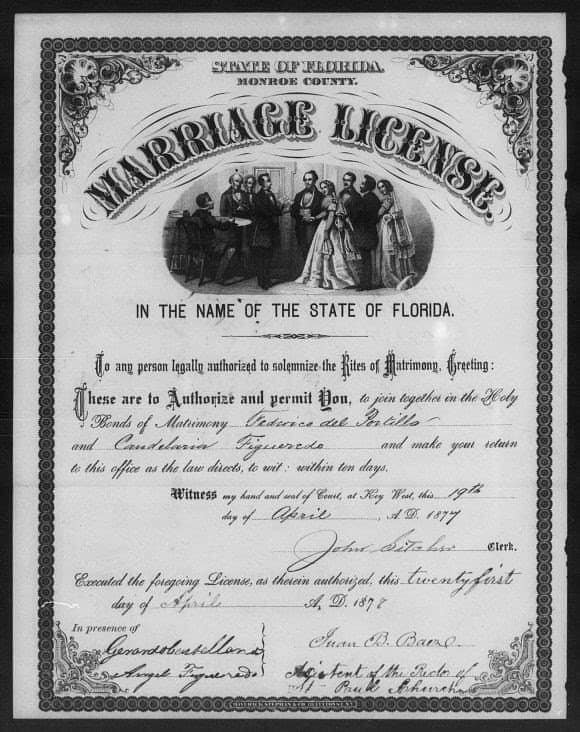 STATE OF FLORIDA.
MONROE COUNTY.
MARRIAGE LICENSE.
IN THE NAME OF THE STATE OF FLORIDA.
To any person legally authorized to solemnize the Rites of Matrimony, Greeting:
These are to Authorize and permit You, to join together in the Holy
Bonds of Matrimony Federico del Portillo
and Candelaria Figueredo and make your return
to this office as the law directs, to wit: within ten days.
Witness my hand and seal of Court, at Key West, this 19th
day of April A. D. 1877
John Clerk.
Executed the foregoing License, as therein authorized, this twenty first
day of April A. D. 187
In presence of
Gerardo Castellano
Angel Figueredo
Juan B. Baez
of the Rector of
St Paul Church